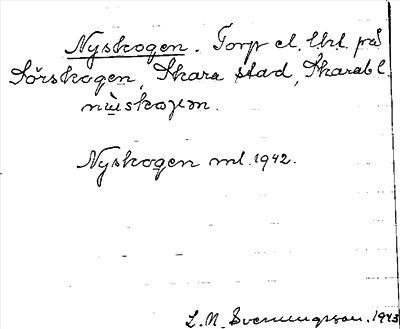 Nyskogen. Torp el. lht. på
Sörskogen, Skara stad, Skarab l.
nùskoγən.
Nyskogen ml. 1942.
L. N. Svenungsson. 1943